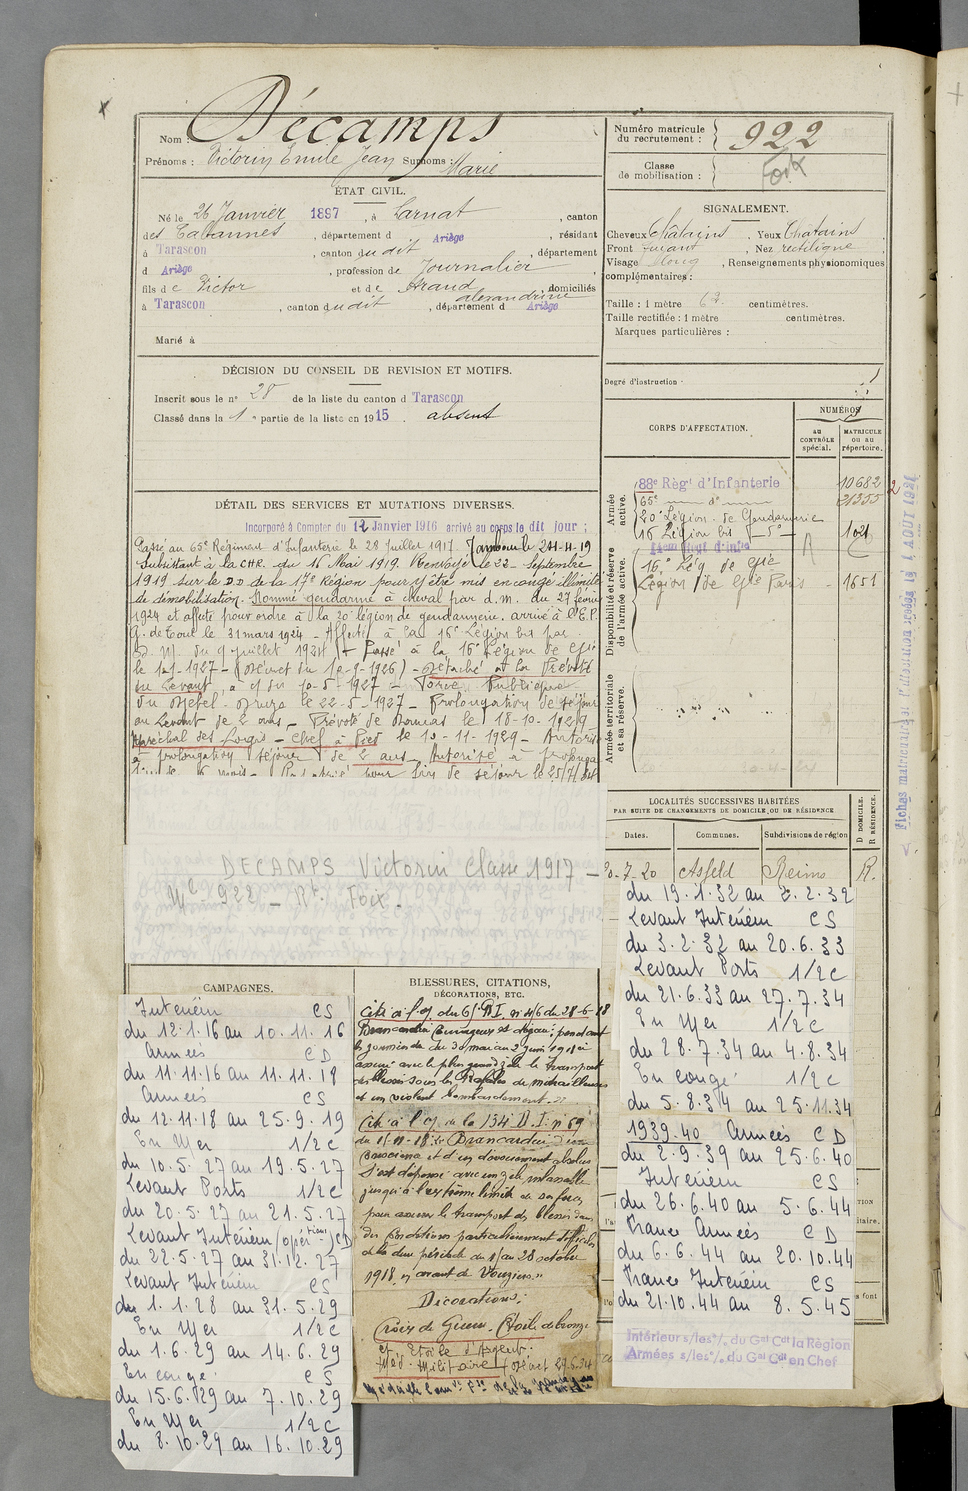 Nom : Décamps
Prénoms : Victorin Emile Jean Surnoms : Marie
ÉTAT CIVIL.
Né le 26 Janvier 1897, à Larnat, canton
des Cabannes, département d Ariège, résidant
à Tarascon, canton dudit, département
d Ariège, profession de Journalier,
fils de Victor et de Araud alexandrine, domiciliés
à Tarascon, canton dudit, département d Ariège
Marié à
DÉCISION DU CONSEIL DE REVISION ET MOTIFS.
Inscrit sous le n° 28 de la liste du canton d Tarascon
Classé dans la 1e partie de la liste en 1915. absent
DÉTAIL DES SERVICES ET MUTATIONS DIVERSES.
Incorporé à Compter du 12 Janvier 1916 arrivé au corps le dit jour ;
Passé au 65e Régiment d'Infanterie le 28 Juillet 1917. Tambour le 24-4-19
Subsistant à la CHR. du 16 Mai 1919. Renvoyé le 22 Septembre
1919 sur le D.D de la 17e Région pour y être mis en congé illimité
de démobilisation. Nommé gendarme à cheval par d.m. du 27 février
1924 et affecté pour ordre à la 20e légion de gendarmerie. arrivé à l'E.P.
G. de Toul le 31 mars 1924 - Affecté à la 16e Légion bis par
D. M. du 9 juillet 1924 - Passé à la 16e Légion de Gie
le 1-1-1927 - (Décret du 10-9-1926) - Détaché à la Prévôté
du Levant à c/ du 10-5-1927 - Force Publique
du Djebel-Druze le 22-5-1927 - Prolongation de séjour
au Levant de 2 ans - Prévôté de Damas le 16-10-1929
Maréchal des Logis - Chef à Pied le 10-11-1929 - Autorisé
à prolongation séjour de 2 ans. Autorisé à prolonga
pour fin de séjour le 25/7/34
DECAMPS Victorin Classe 1917 -
Mle 922 - Rt Foix.
Numéro matricule du recrutement : 922
Classe de mobilisation :
Foix
SIGNALEMENT.
Cheveux Chatains, Yeux Chatains
Front fuyant, Nez rectiligne
Visage long, Renseignements physionomiques
complémentaires :
Taille : 1 mètre 62 centimètres.
Taille rectifiée : 1 mètre centimètres.
Marques particulières :
Degré d'instruction
CORPS D'AFFECTATION.
NUMÉROS
au CONTRÔLE spécial.
MATRICULE ou au répertoire.
Armée active.
88e Régt d'Infanterie 10682
65e d° 21355
20e Légion de Gendarmerie
16 Légion bis - d° - 1021
Disponibilité et réserve de l'armée active.
16e Lég de Gie
Légion de Gie Paris - 1651
Armée territoriale et sa réserve.
LOCALITÉS SUCCESSIVES HABITÉES
PAR SUITE DE CHANGEMENTS DE DOMICILE OU DE RÉSIDENCE
Dates. Communes. Subdivisions de région
D DOMICILE. R RÉSIDENCE.
-7-20 Asfeld Reims R.
CAMPAGNES.
Intérieur CS
du 12.1.16 au 10.11.16
Armées CD
du 11.11.16 au 11.11.18
Armées CS
du 12.11.18 au 25.9.19
En Mer 1/2 C
du 10.5.27 au 19.5.27
Levant Ports 1/2 C
du 20.5.27 au 21.5.27
Levant Intérieur (opérations) CD
du 22.5.27 au 31.12.27
Levant Intérieur CS
du 1.1.28 au 31.5.29
En Mer 1/2 C
du 1.6.29 au 14.6.29
En congé CS
du 15.6.29 au 7.10.29
En Mer 1/2 C
du 8.10.29 au 16.10.29
BLESSURES, CITATIONS,
DÉCORATIONS, ETC.
Cité à l'o/ du 65e R.I. n° 416 du 28-6-18
Brancardier courageux et dévoué; pendant
les journées du 30 mai au 2 juin 1918 a
assuré avec le plus grand zèle le transport
des blessés sous les Rafales de mitrailleuses
et un violent bombardement. »
Cité à l'o/ de la 134e D.I. n° 69
du 15-11-18 : « Brancardier d'une
conscience et d'un dévouement absolus
s'est dépensé avec un zèle inlassable
jusqu'à l'extrême limite de ses forces
pour assurer le transport des blessés dans
des conditions particulièrement difficiles
au 20 octobre
1918, en avant de Vouziers. »
Décorations ;
Croix de Guerre. Étoile de bronze
et Étoile d'Argent.
Méd. Militaire (Décret 29.6.34
du 19.1.32 au 2.2.32
Levant Intérieur CS
du 3.2.32 au 20.6.33
Levant Ports 1/2 C
du 21.6.33 au 27.7.34
En Mer 1/2 C
du 28.7.34 au 4.8.34
En congé 1/2 C
du 5.8.34 au 25.11.34
1939.40 Armées CD
du 2.9.39 au 25.6.40
Intérieur CS
du 26.6.40 au 5.6.44
France Armées CD
du 6.6.44 au 20.10.44
France Intérieur CS
du 21.10.44 au 8.5.45
Intérieur s/les °/. du Gal Cdt la Région
Armées s/les °/. du Gal Cdt en Chef